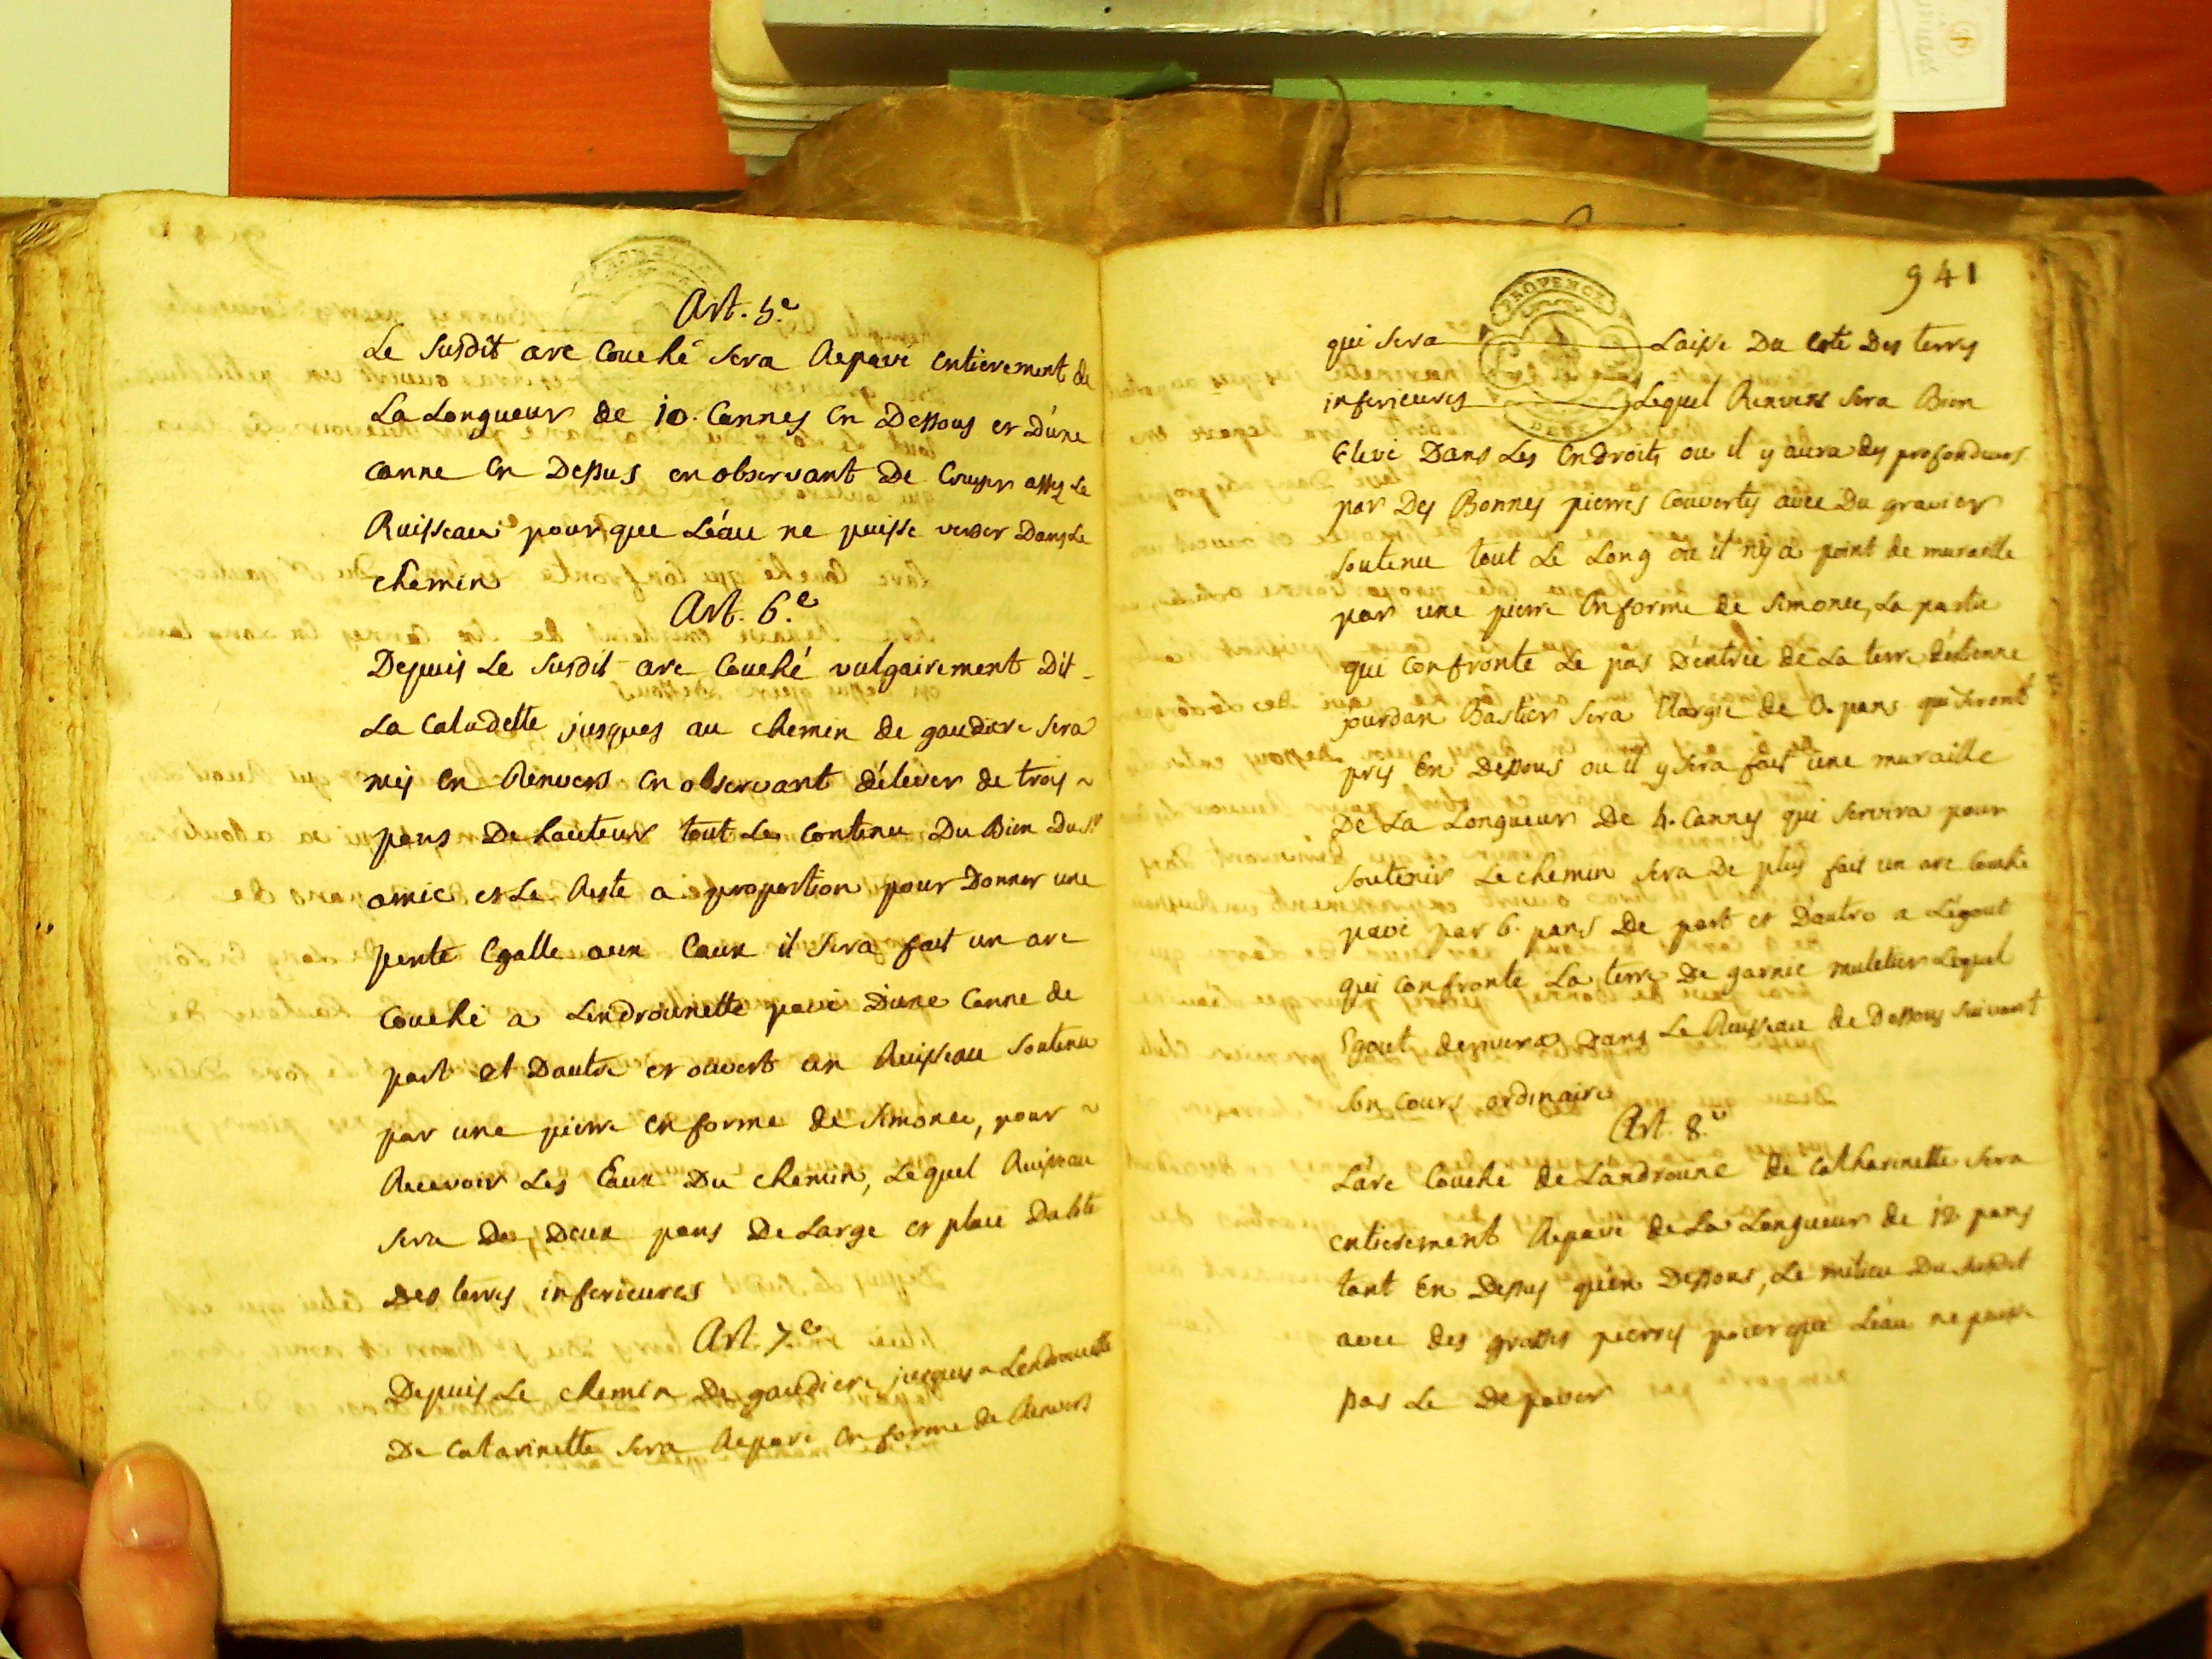 Art. 5.e
Le susdit arc couché sera Repavé entierement de
La Longueur de 10. Cannes en Dessous et D'une
canne en Dessus en observant De Creuser assez Le
Ruisseau pour que L'éau ne puisse verser Dans Le
chemin
Art. 6.e
Depuis Le susdit arc Couché vulgairement Dit
La Caladette jusques au chemin de gaudiere sera
mis en Renvers en observant d'élever de trois
pans De hauteur tout Le contenu Du Bien Du Sr
amic et Le Reste a proportion pour Donner une
pente Egalle aux Eaux il sera fait un arc
Couché a Lendrounette pavé D'une Canne de
part et D'autre et ouvert un Ruisseau soutenu
par une pierre en forme de simonce, pour
Recevoir Les Eaux Du chemin, Lequel Ruisseau
sera De Deux pans De Large et placé Du Coté
Des terres inferieures
Art. 7.e
Depuis Le chemin De gaudiere jusques a Lendrounette
De Catarinette sera Reparé en forme de Renvers
941
PROVENCE
qui sera Laissé Du Coté Des terres
inferieures Lequel Renvers sera Bien
Elevé Dans Les Endroits ou il y aura des profondeurs
par Des Bonnes pierres Couvertes avec Du gravier
soutenu tout Le Long ou il n'y a point de muraille
par une pierre en forme de simonce, La partie
qui confronte Le pas D'entrée de La terre d'étienne
jourdan Bastier sera Elargie de pans qui seront
pris En Dessous ou il y sera fait une muraille
De La Longueur De 4. Cannes qui servira pour
soutenir Le chemin sera De plus fait un arc Couché
pavé par 6. pans De part et D'autre a L'égout
qui confronte La terre De garnie muletier Lequel
Egout derivera Dans Le Ruisseau de Dessous suivant
son cours ordinaire
Art. 8.e
L'arc Couché de Landroune de Catharinette sera
entierement Repavé de La Longueur de 12 pans
tant En Dessus qu'en Dessous, Le milieu Du susdit
avec des grosses pierres pour que L'éau ne puisse
pas Le Depaver